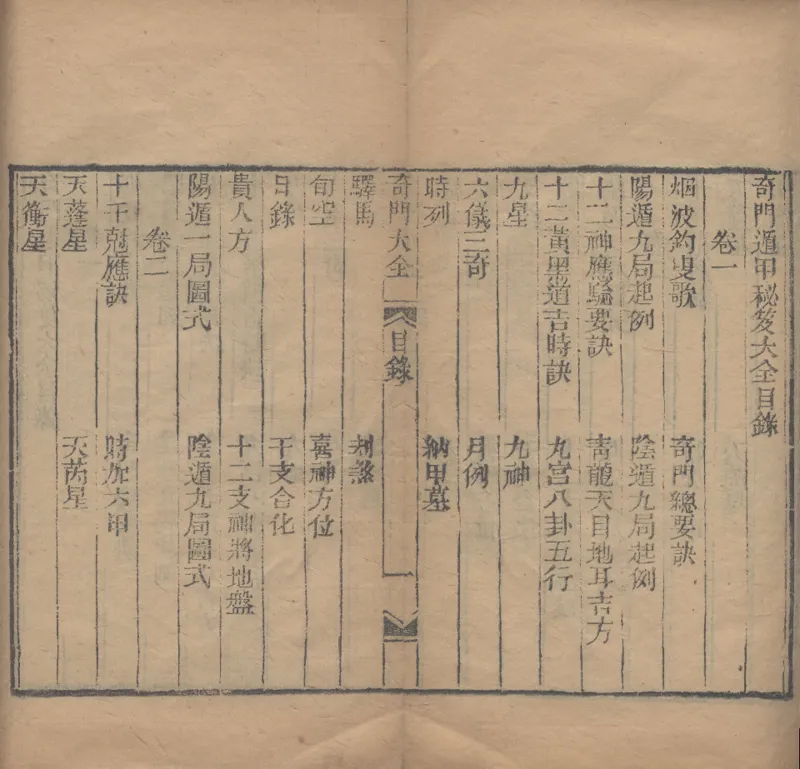 奇門遁甲秘笈大全目錄
卷一
烟波釣叟歌 奇門總要訣
陽遁九局起例 陰遁九局起例
十二神應驗要訣 青龍天目地耳吉方
十二黃黑道吉時訣 九宮八卦五行
九星 九神
六儀三奇 月例
時列 納甲墓
奇門大全 目錄 一
驛馬 刦煞
旬空 喜神方位
日錄 干支合化
貴人方 十二支神將地盤
陽遁一局圖式 陰遁九局圖式
卷二
十干尅應訣 時加六甲
天蓬星 天芮星
天衝星